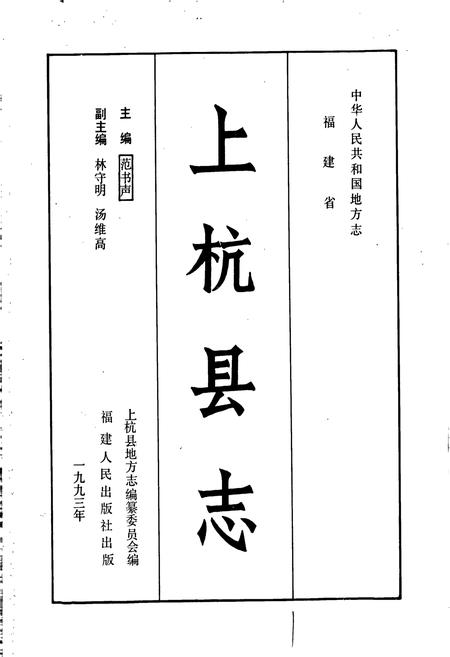 中华人民共和国地方志
福建省
上杭县志
主编 范书声
副主编 林守明 汤维高
上杭县地方志编纂委员会编
福建人民出版社出版
一九九三年